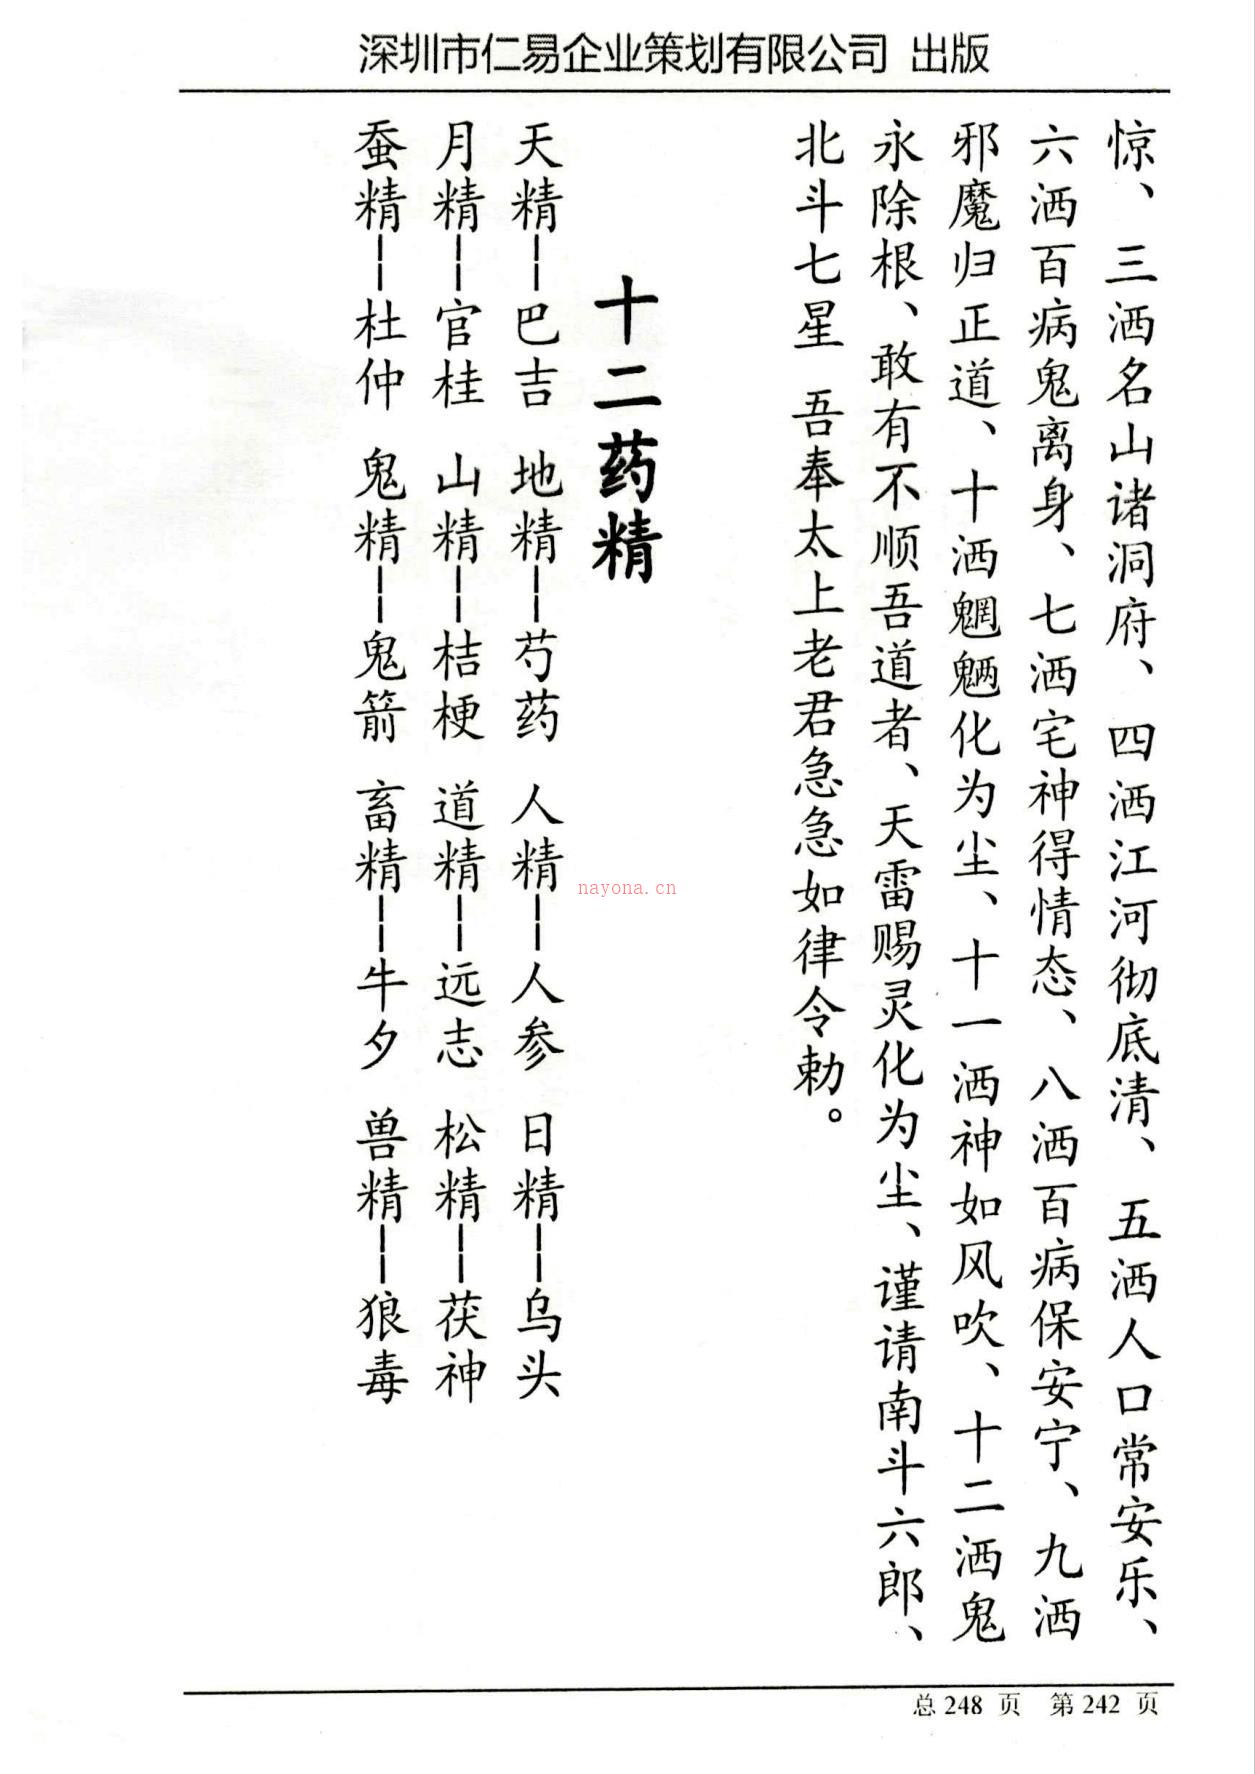 深圳市仁易企业策划有限公司 出版
惊、三洒名山诸洞府、四洒江河彻底清、五洒人口常安乐、
六洒百病鬼离身、七洒宅神得情态、八洒百病保安宁、九洒
邪魔归正道、十洒魍魉化为尘、十一洒神如风吹、十二洒鬼
永除根、敢有不顺吾道者、天雷赐灵化为尘、谨请南斗六郎、
北斗七星 吾奉太上老君急急如律令勅。
十二药精
天精——巴吉 地精——芍药 人精——人参 日精——乌头
月精——官桂 山精——桔梗 道精——远志 松精——茯神
蚕精——杜仲 鬼精——鬼箭 畜精——牛夕 兽精——狼毒
nayona.cn
总 248 页 第 242 页